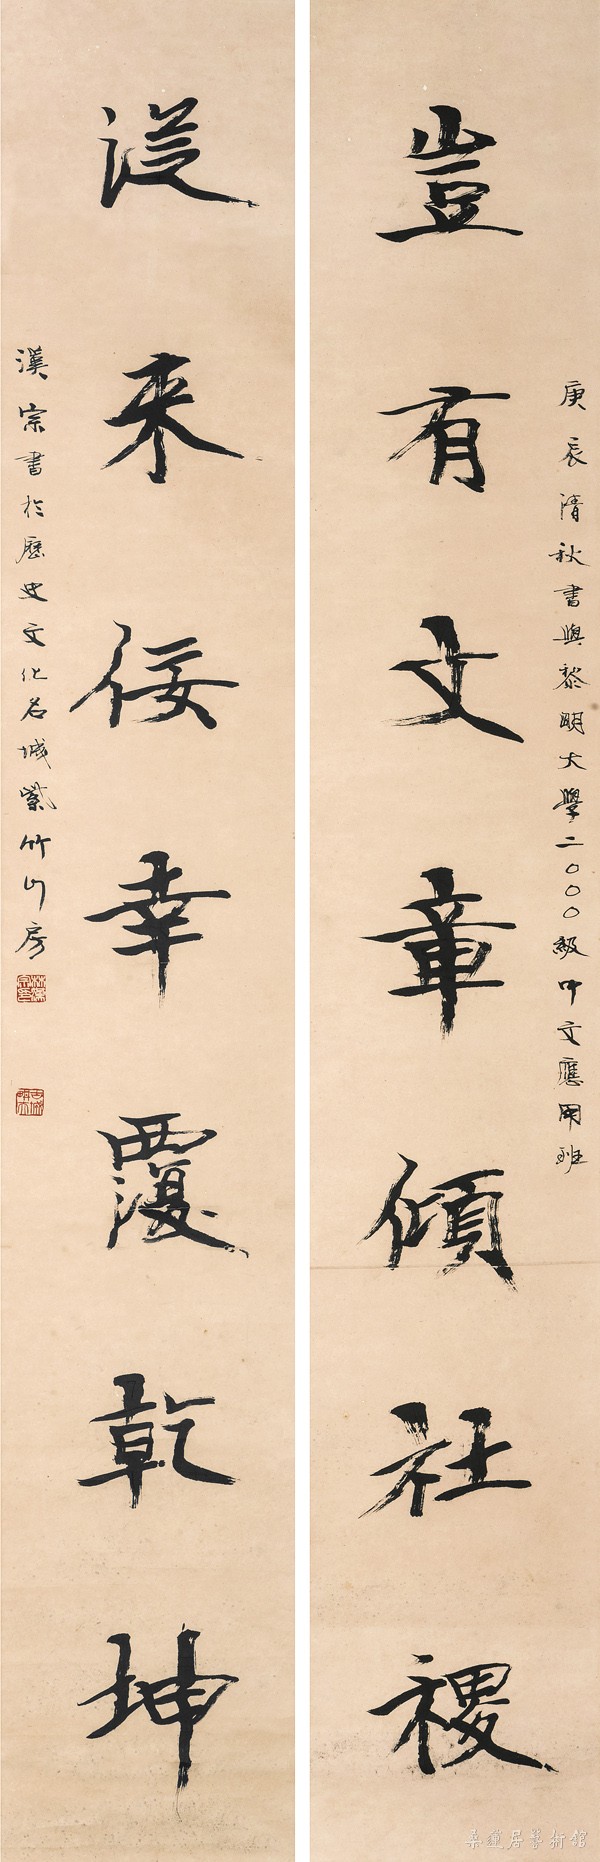 庚辰清秋書與黎明大學二〇〇〇級中文應用班
豈有文章傾社稷
從來佞幸覆乾坤
漢宗書於歷史文化名城紫竹山房
桑蓮居藝術館